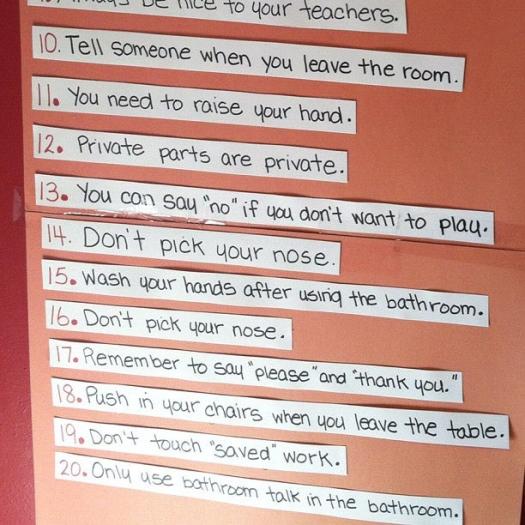 be nice to your teachers.
10. Tell someone when you leave the room.
11. You need to raise your hand.
12. Private parts are private.
13. You can say "no" if you don't want to play.
14. Don't pick your nose.
15. Wash your hands after using the bathroom.
16. Don't pick your nose.
17. Remember to say "please" and "thank you."
18. Push in your chairs when you leave the table.
19. Don't touch "saved" work.
20. Only use bathroom talk in the bathroom.